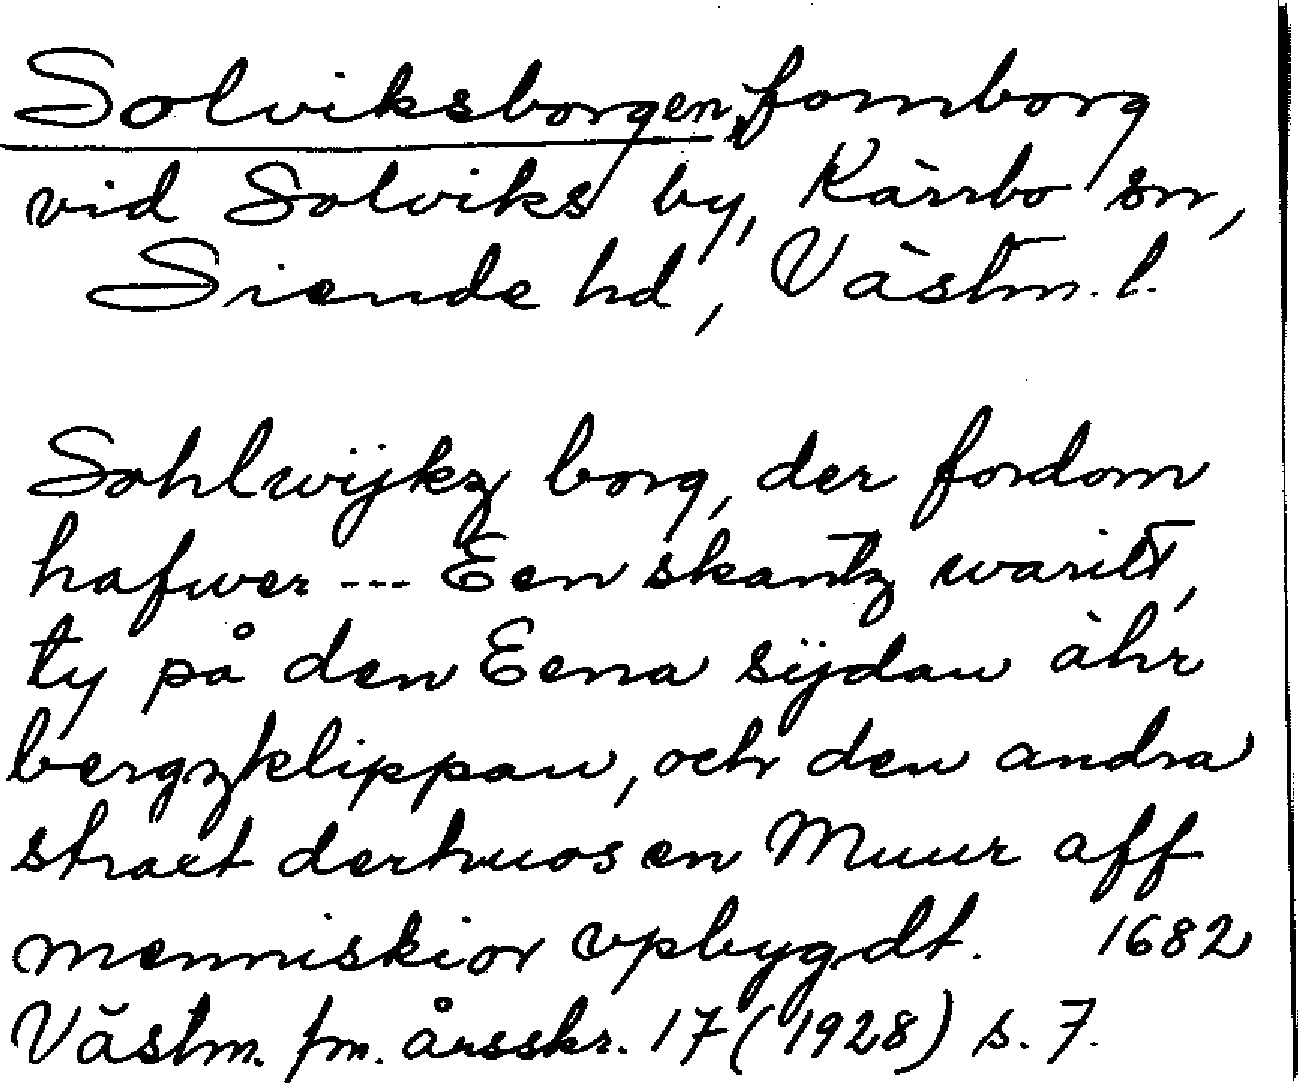 Solviksborgen, fornborg
vid Solviks by, Kärrbo sn,
Siende hd, Västm. l.
Sohlwijkz borg, der fordom
hafwer --- Een skantz waritt,
ty på den Eena sijdan ähr
bergzklippan, och den andra
straxt derhuos en Muur aff
menniskior vpbygdt. 1682
Västm. fm. årsskr. 17 (1928) s. 7.